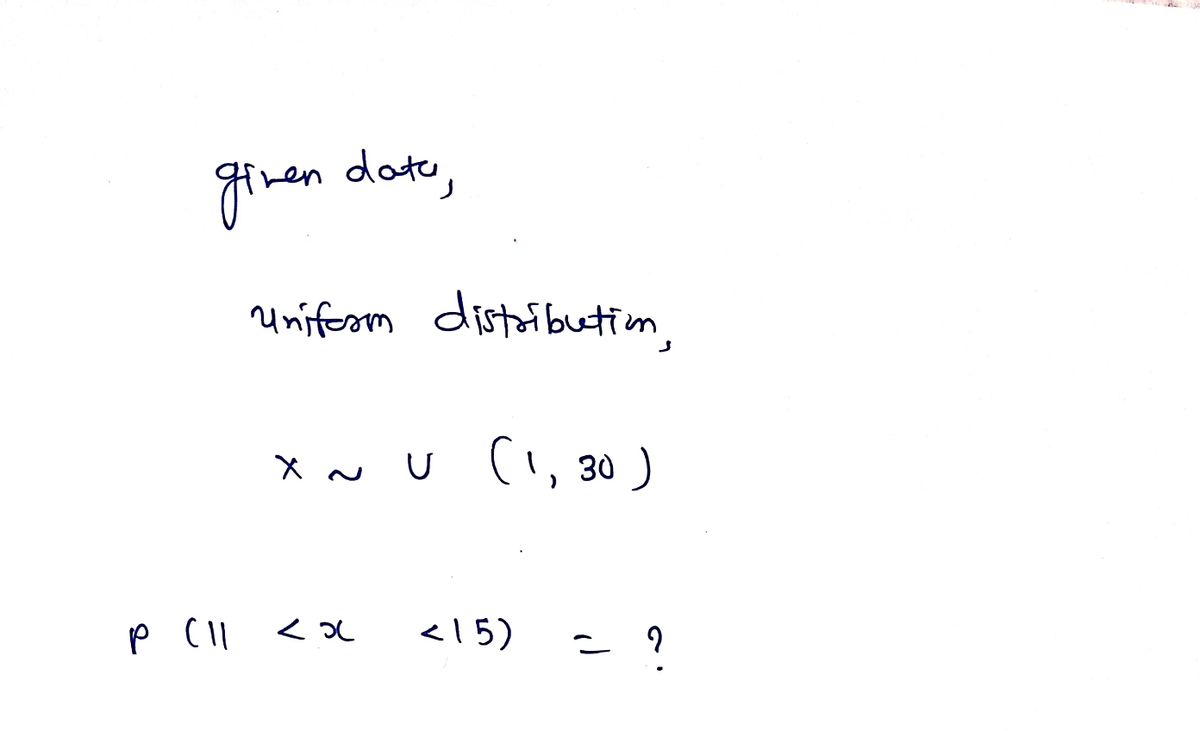 given data,
uniform distribution,
x ~ U (1, 30)
P (11 < x < 15) = ?